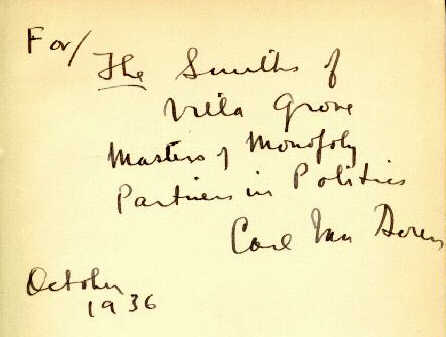 For/
The Smiths of
Villa Grove
Masters of Monopoly
Partners in Politics
Carl Van Doren
October
1936